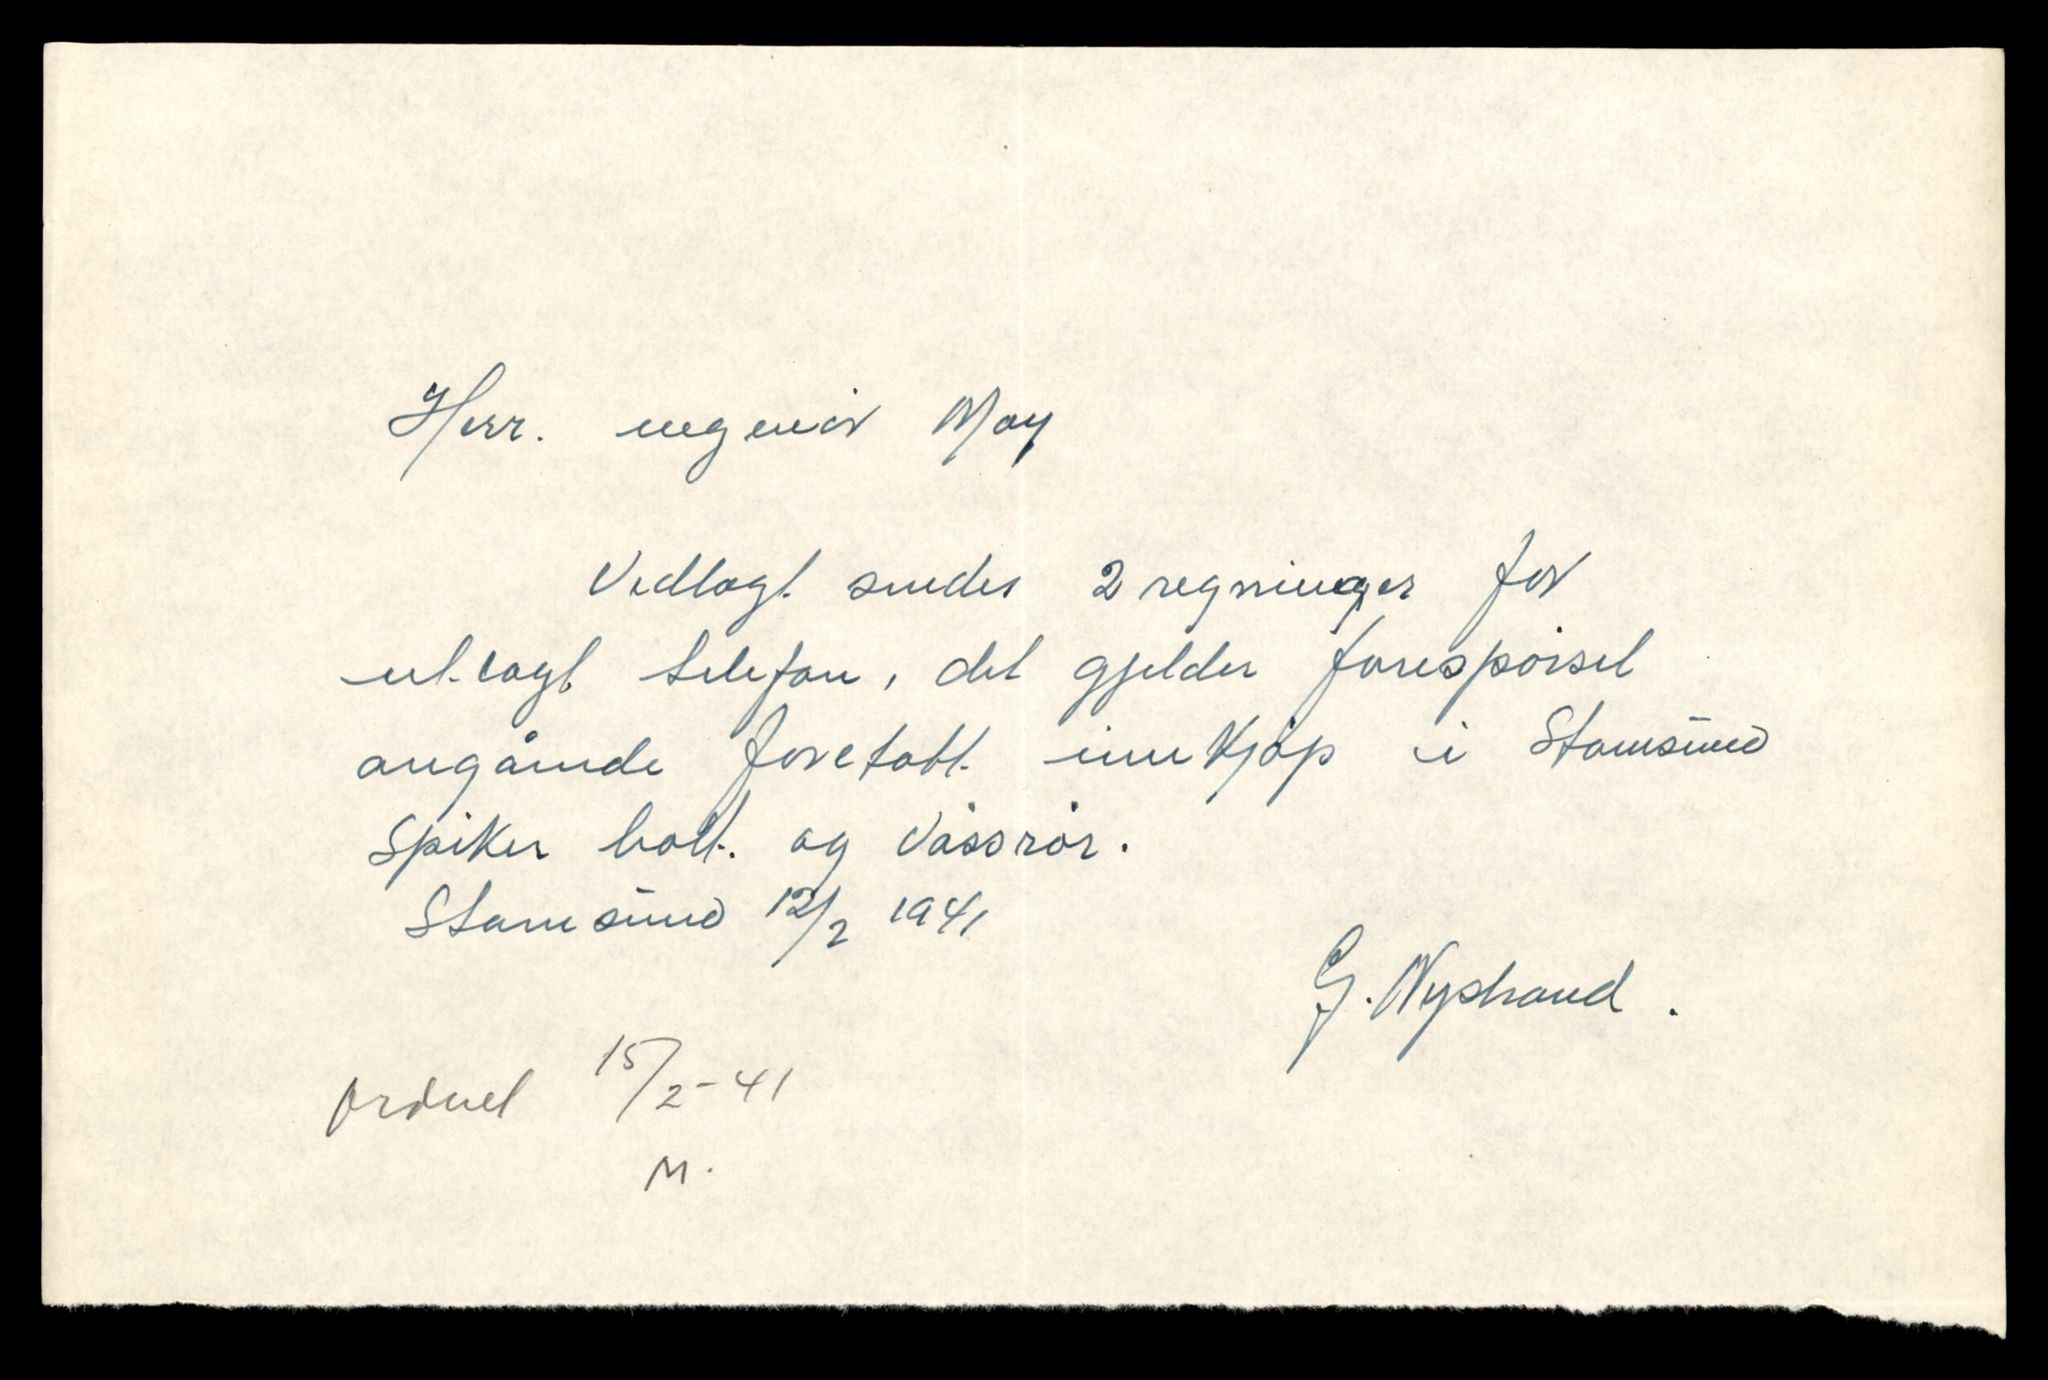 Herr. ingeniør May
Vedlagt sendes 2 regninger for
utlagt telefon, det gjelder forespørsel
angående foretatt innkjøp i Stamsund
Spiker bolt. og Vassrør.
Stamsund 12/2 1941
G. Nystrand.
Ordnet 15/2-41
M.